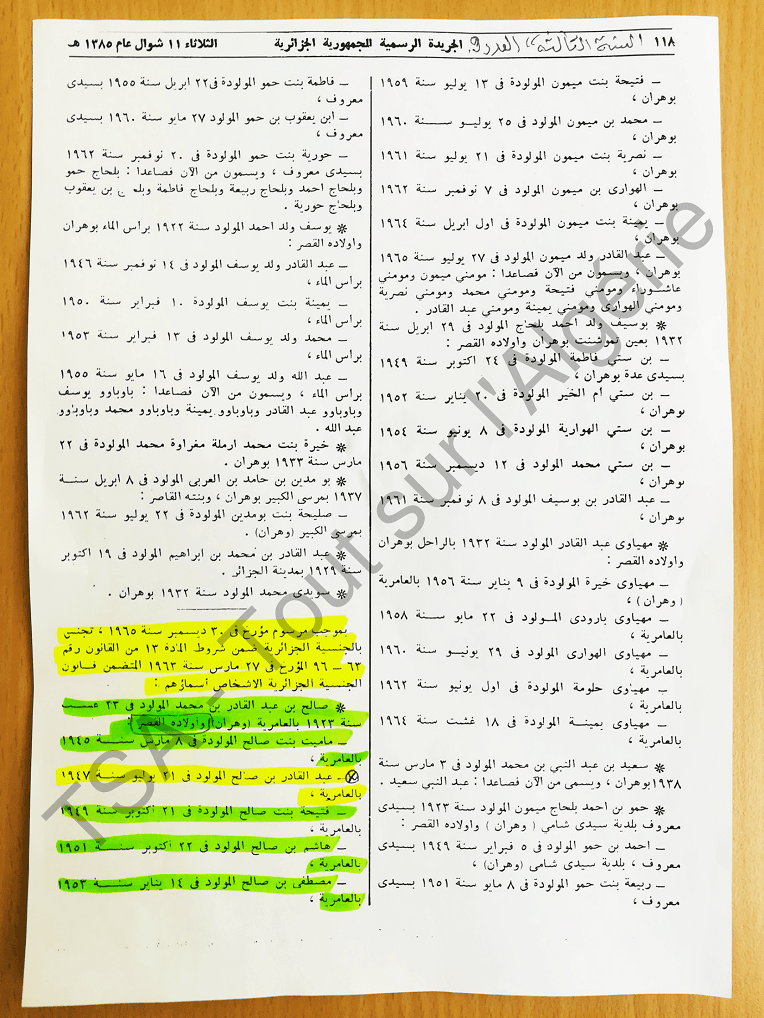 ١١٨ السنة الثالثة، العدد 9 الجريدة الرسمية للجمهورية الجزائرية الثلاثاء ١١ شوال عام ١٣٨٥ هـ
ـ فتيحة بنت ميمون المولودة فى ١٣ يوليو سنة ١٩٥٩
بوهران ،
ـ محمد بن ميمون المولود فى ٢٥ يوليو سنة ١٩٦٠
بوهران ،
ـ نصرية بنت ميمون المولودة فى ٢١ يوليو سنة ١٩٦١
بوهران ،
ـ الهوارى بن ميمون المولود فى ٧ نوفمبر سنة ١٩٦٢
بوهران ،
ـ يمينة بنت ميمون المولودة فى اول ابريل سنة ١٩٦٤
بوهران ،
ـ عبد القادر ولد ميمون المولود فى ٢٧ يوليو سنة ١٩٦٥
بوهران ، ويسمون من الآن فصاعدا : مومني ميمون ومومني
عاشوراء ومومني فتيحة ومومني محمد ومومني نصرية
ومومني الهوارى ومومني يمينة ومومني عبد القادر .
* بوسيف ولد احمد بلحاج المولود فى ٢٩ ابريل سنة
١٩٣٢ بعين تموشنت بوهران واولاده القصر :
ـ بن ستي فاطمة المولودة فى ٢٤ اكتوبر سنة ١٩٤٩
بسيدى عدة بوهران ،
ـ بن ستي ام الخير المولودة فى ٢٠ يناير سنة ١٩٥٢
بوهران ،
ـ بن ستي الهوارية المولودة فى ٨ يونيو سنة ١٩٥٤
بوهران ،
ـ بن ستي محمد المولود فى ١٢ ديسمبر سنة ١٩٥٦
بوهران ،
ـ عبد القادر بن بوسيف المولود فى ٨ نوفمبر سنة ١٩٦١
بوهران ،
* مهياوى عبد القادر المولود سنة ١٩٣٢ بالراحل بوهران
واولاده القصر :
ـ مهياوى خيرة المولودة فى ٩ يناير سنة ١٩٥٦ بالعامرية
( وهران ) ،
ـ مهياوى بارودى المولود فى ٢٢ مايو سنة ١٩٥٨
بالعامرية ،
ـ مهياوى الهوارى المولود فى ٢٩ يونيو سنة ١٩٦٠
بالعامرية ،
ـ مهياوى حلومة المولودة فى اول يونيو سنة ١٩٦٢
بالعامرية ،
ـ مهياوى يمينة المولودة فى ١٨ غشت سنة ١٩٦٤
بالعامرية ،
* سعيد بن عبد النبي بن محمد المولود فى ٣ مارس سنة
١٩٣٨ بوهران ، ويسمى من الآن فصاعدا : عبد النبي سعيد .
* حمو بن احمد بلحاج ميمون المولود سنة ١٩٢٣ بسيدى
معروف بلدية سيدى شامى ( وهران ) واولاده القصر :
ـ احمد بن حمو المولود فى ٥ فبراير سنة ١٩٤٩ بسيدى
معروف ، بلدية سيدى شامى (وهران) ،
ـ ربيعة بنت حمو المولودة فى ٨ مايو سنة ١٩٥١ بسيدى
معروف ،
ـ فاطمة بنت حمو المولودة فى ٢٢ ابريل سنة ١٩٥٥ بسيدى
معروف ،
ـ ابن يعقوب بن حمو المولود ٢٧ مايو سنة ١٩٦٠ بسيدى
معروف ،
ـ حورية بنت حمو المولودة فى ٢٠ نوفمبر سنة ١٩٦٢
بسيدى معروف ، ويسمون من الآن فصاعدا : بلحاج حمو
وبلحاج احمد وبلحاج ربيعة وبلحاج فاطمة وبلحاج بن يعقوب
وبلحاج حورية .
* يوسف ولد احمد المولود سنة ١٩٢٢ براس الماء بوهران
واولاده القصر :
ـ عبد القادر ولد يوسف المولود فى ١٤ نوفمبر سنة ١٩٤٦
براس الماء ،
ـ يمينة بنت يوسف المولودة ١٠ فبراير سنة ١٩٥٠
براس الماء ،
ـ محمد ولد يوسف المولود فى ١٣ فبراير سنة ١٩٥٣
براس الماء ،
ـ عبد الله ولد يوسف المولود فى ١٦ مايو سنة ١٩٥٥
براس الماء ، ويسمون من الآن فصاعدا : باوباوو يوسف
وباوباوو عبد القادر وباوباوو يمينة وباوباوو محمد وباوباوو
عبد الله .
* خيرة بنت محمد ارملة مغراوة محمد المولودة فى ٢٢
مارس سنة ١٩٣٣ بوهران .
* بو مدين بن حامد بن العربى المولود فى ٨ ابريل سنة
١٩٣٧ بمرسى الكبير بوهران ، وبنته القاصر :
ـ صليحة بنت بومدين المولودة فى ٢٢ يوليو سنة ١٩٦٢
بمرسى الكبير (وهران) .
* عبد القادر بن محمد بن ابراهيم المولود فى ١٩ اكتوبر
سنة ١٩٢٩ بمدينة الجزائر .
* سويدى محمد المولود سنة ١٩٣٢ بوهران .
بموجب مرسوم مؤرخ فى ٣٠ ديسمبر سنة ١٩٦٥ ، تجنس
بالجنسية الجزائرية ضمن شروط المادة ١٣ من القانون رقم
٦٣ ـ ٩٦ المؤرخ فى ٢٧ مارس سنة ١٩٦٣ المتضمن قانون
الجنسية الجزائرية الاشخاص أسماؤهم :
* صالح بن عبد القادر بن محمد المولود فى ٢٣ غشت
سنة ١٩٢٣ بالعامرية (وهران) واولاده القصر :
ـ ماميت بنت صالح المولودة فى ٨ مارس سنة ١٩٤٥
بالعامرية ،
ـ عبد القادر بن صالح المولود فى ٢١ يوليو سنة ١٩٤٧
بالعامرية ،
ـ فتيحة بنت صالح المولودة فى ٢١ أكتوبر سنة ١٩٤٩
بالعامرية ،
ـ هاشم بن صالح المولود فى ٢٢ أكتوبر سنة ١٩٥١
بالعامرية ،
ـ مصطفى بن صالح المولود فى ١٤ يناير سنة ١٩٥٣
بالعامرية ،
TSA - Tout sur l'Algérie